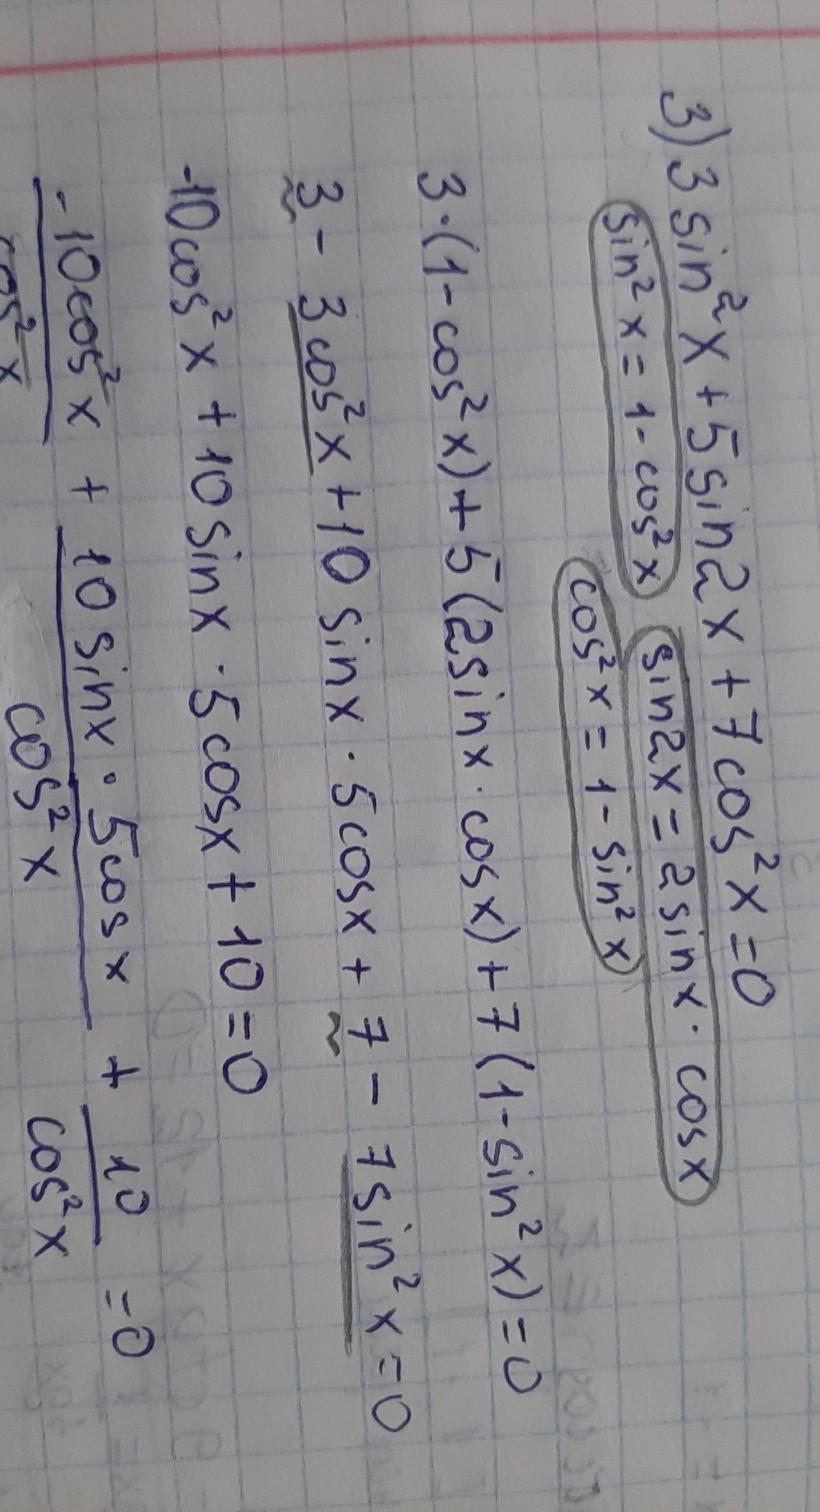 3) 3 sin²x + 5 sin2x + 7cos²x = 0
sin²x = 1 - cos²x sin2x = 2 sinx · cosx
cos²x = 1 - sin²x
3·(1 - cos²x) + 5(2sinx · cosx) + 7(1 - sin²x) = 0
3 - 3cos²x + 10 sinx · 5cosx + 7 - 7sin²x = 0
-10cos²x + 10sinx · 5cosx + 10 = 0
-10cos²x/cos²x + 10sinx · 5cosx/cos²x + 10/cos²x = 0